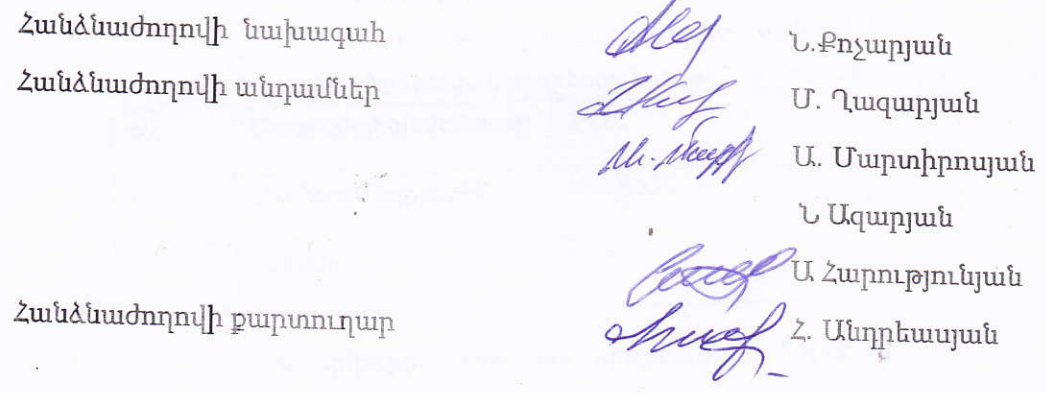 Հանձնաժողովի նախագահ Ն.Քոչարյան
Հանձնաժողովի անդամներ Մ. Ղազարյան
Ա. Մարտիրոսյան
Ն Ազարյան
Ա Հարությունյան
Հանձնաժողովի քարտուղար Հ. Անդրեասյան